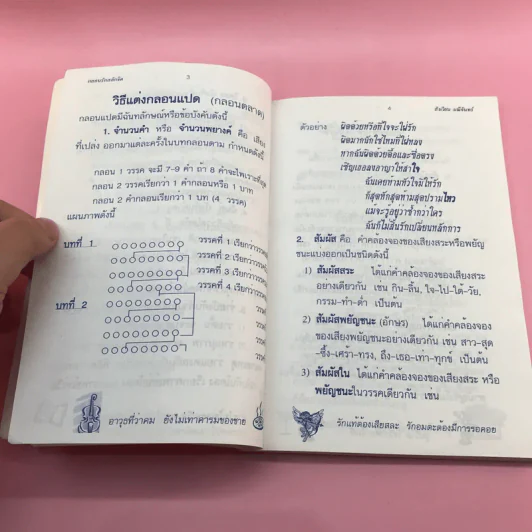 3
วิธีแต่งกลอนแปด (กลอนตลาด)
กลอนแปดมีฉันทลักษณ์หรือข้อบังคับดังนี้
1. จำนวนคำ หรือ จำนวนพยางค์ คือ เสียง
ที่เปล่ง ออกมาแต่ละครั้งในบทกลอนตาม กำหนดดังนี้
กลอน 1 วรรค จะมี 7-9 คำ ถ้า 8 คำจะไพเราะที่สุด
กลอน 2 วรรคเรียกว่า 1 คำกลอนหรือ 1 บาท
กลอน 2 คำกลอนเรียกว่า 1 บท (4 วรรค)
แผนภาพดังนี้
บทที่ 1
วรรคที่ 1 เรียกว่าวรรค
วรรคที่ 2 เรียกว่าวรรค
วรรคที่ 3 เรียกว่าวรรค
วรรคที่ 4 เรียกว่าวรรค
บทที่ 2
วรรค
วรรค
วรรค
วรรค
อาวุธที่ว่าคม ยังไม่เท่าคารมของชาย
4
ตัวอย่าง
ผิดด้วยหรือที่ใจจะใฝ่รัก
ผิดมากนักใช่ไหมที่ใฝ่หลง
หากฉันผิดด้วยซื่อและซื่อตรง
เชิญเธอลงอาญาให้สาใจ
ฉันเคยห้ามหัวใจมิให้รัก
ก็สุดหักสุดห้ามสุดปรามไหว
แม้จะรู้อยู่ว่าช้ำกว่าใคร
ฉันก็ไม่สิ้นรักเปลี่ยนหลักการ
2. สัมผัส คือ คำคล้องจองของเสียงสระหรือพยัญ
ชนะแบ่งออกเป็นชนิดดังนี้
1) สัมผัสสระ ได้แก่คำคล้องจองของเสียงสระ
อย่างเดียวกัน เช่น กิน-ลิ้น, ใจ-ไป-ได้-วัย,
กรรม-ทำ-ด่ำ เป็นต้น
2) สัมผัสพยัญชนะ (อักษร) ได้แก่คำคล้องจอง
ของเสียงพยัญชนะอย่างเดียวกัน เช่น สาว-สุด
-ซึ้ง-เศร้า-ทรง, ถึง-เธอ-เท่า-ทุกข์ เป็นต้น
3) สัมผัสใน ได้แก่คำคล้องจองของเสียงสระ หรือ
พยัญชนะในวรรคเดียวกัน เช่น
รักแท้ต้องเสียสละ รักอมตะต้องมีการรอคอย